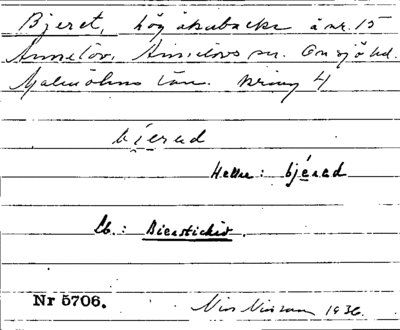 Bjeret, hög åkerbacke å nr. 15
Annelöv, Annelövs sn. Onsjö hd.
Malmöhus län. kring 4
bjerad
Heller: bjérad
Lb.:
Nr 5706. Nils Nilsson 1936.